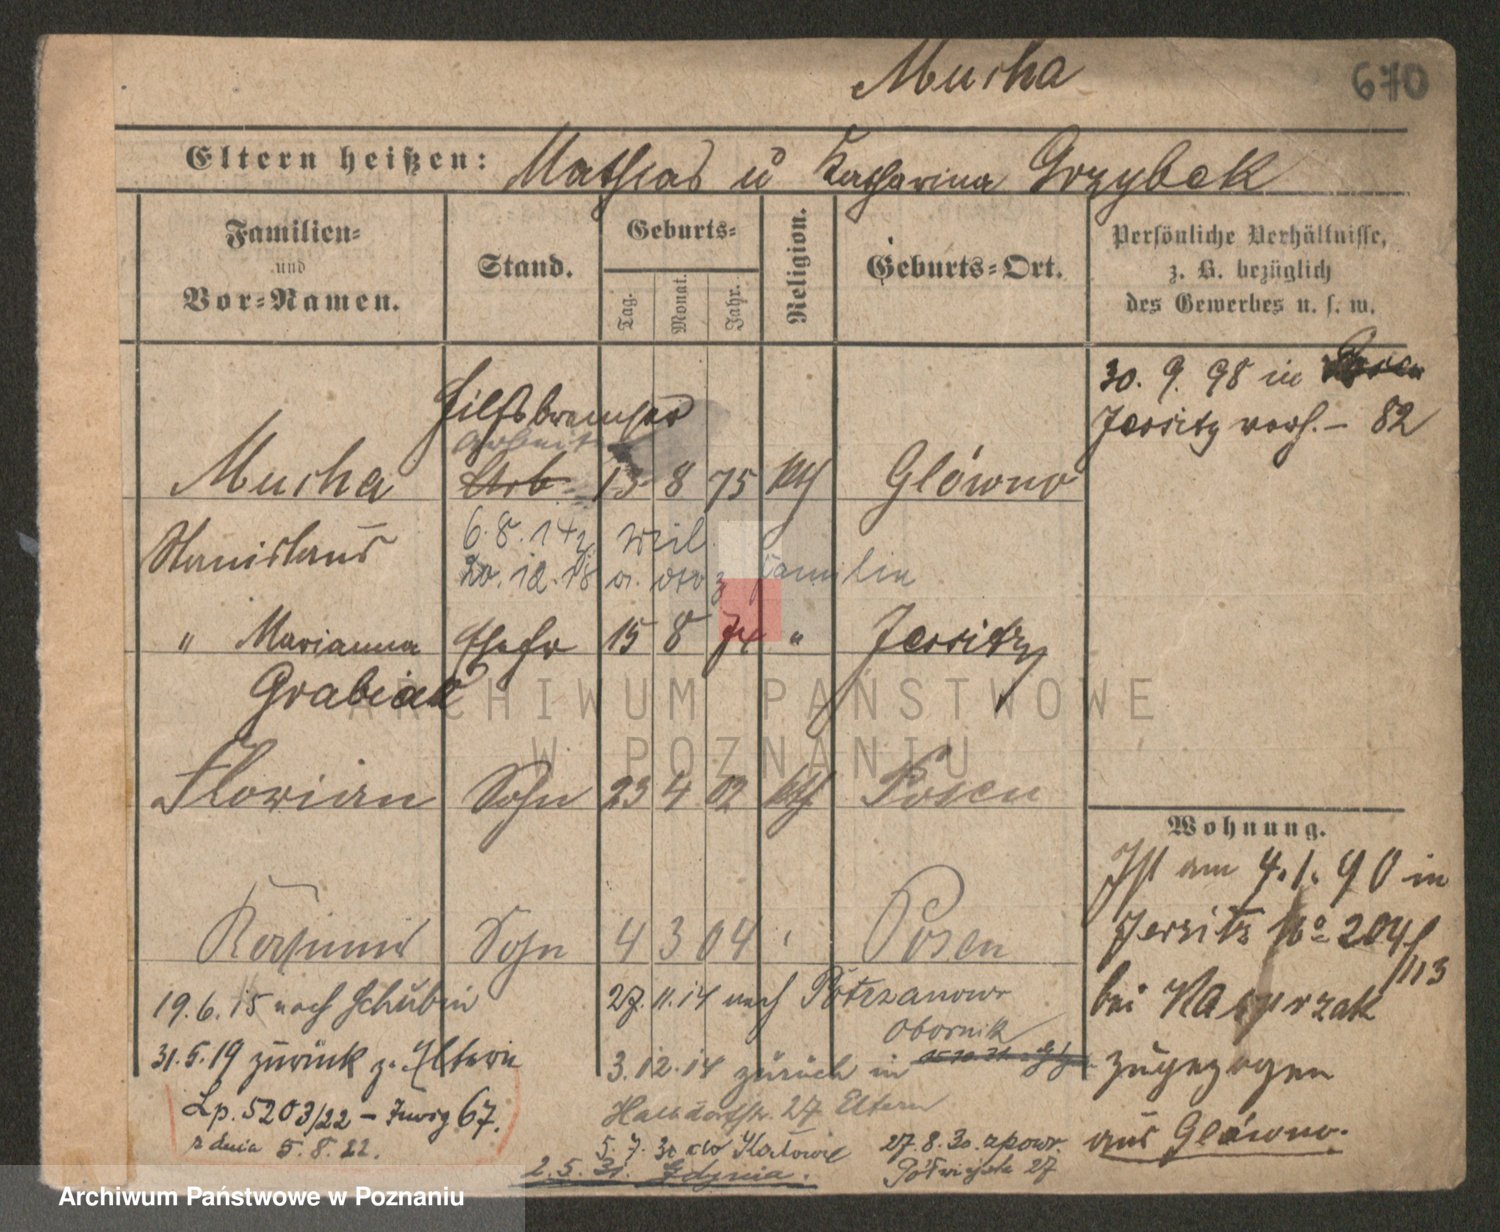 Mucha
670
Eltern heißen: Mathias u Katharina Grzybek
Familien-
und
Vor-Namen.
Stand.
Geburts-
Tag.
Monat.
Jahr.
Religion.
Geburts-Ort.
Persönliche Verhältnisse,
z. B. bezüglich
des Gewerbes u. s. w.
30. 9. 98 in
Jersitz verh. – 82
Hilfsbremser
Arbeit
Mucha Arb. 13 8 75 kth Glówno
Stanislaus 6.8.14 z
20.12.18 familie
" Marianna Ehefr 15 8 74 " Jersitz
Grabiak
ARCHIWUM PAŃSTWOWE
W POZNANIU
Florian Sohn 23 4 02 kth Posen
Kasimir Sohn 4 3 04 Posen
19.6.15 nach Schubin
31.5.19 zurück z. Eltern
Lp. 5203/22 – 67.
z dnia 5.8.22.
27.11.14 nach
Obornik
3.12.14 zurück in
27 Eltern
5.7.30 do Katowic
2.5.31. Gdynia.
27.8.30. z powr.
Półwiejska 27
Wohnung.
Ist am 4.1.90 in
Jersitz No 204/113
bei Kasprzak
zugezogen
aus Glówno.
Archiwum Państwowe w Poznaniu